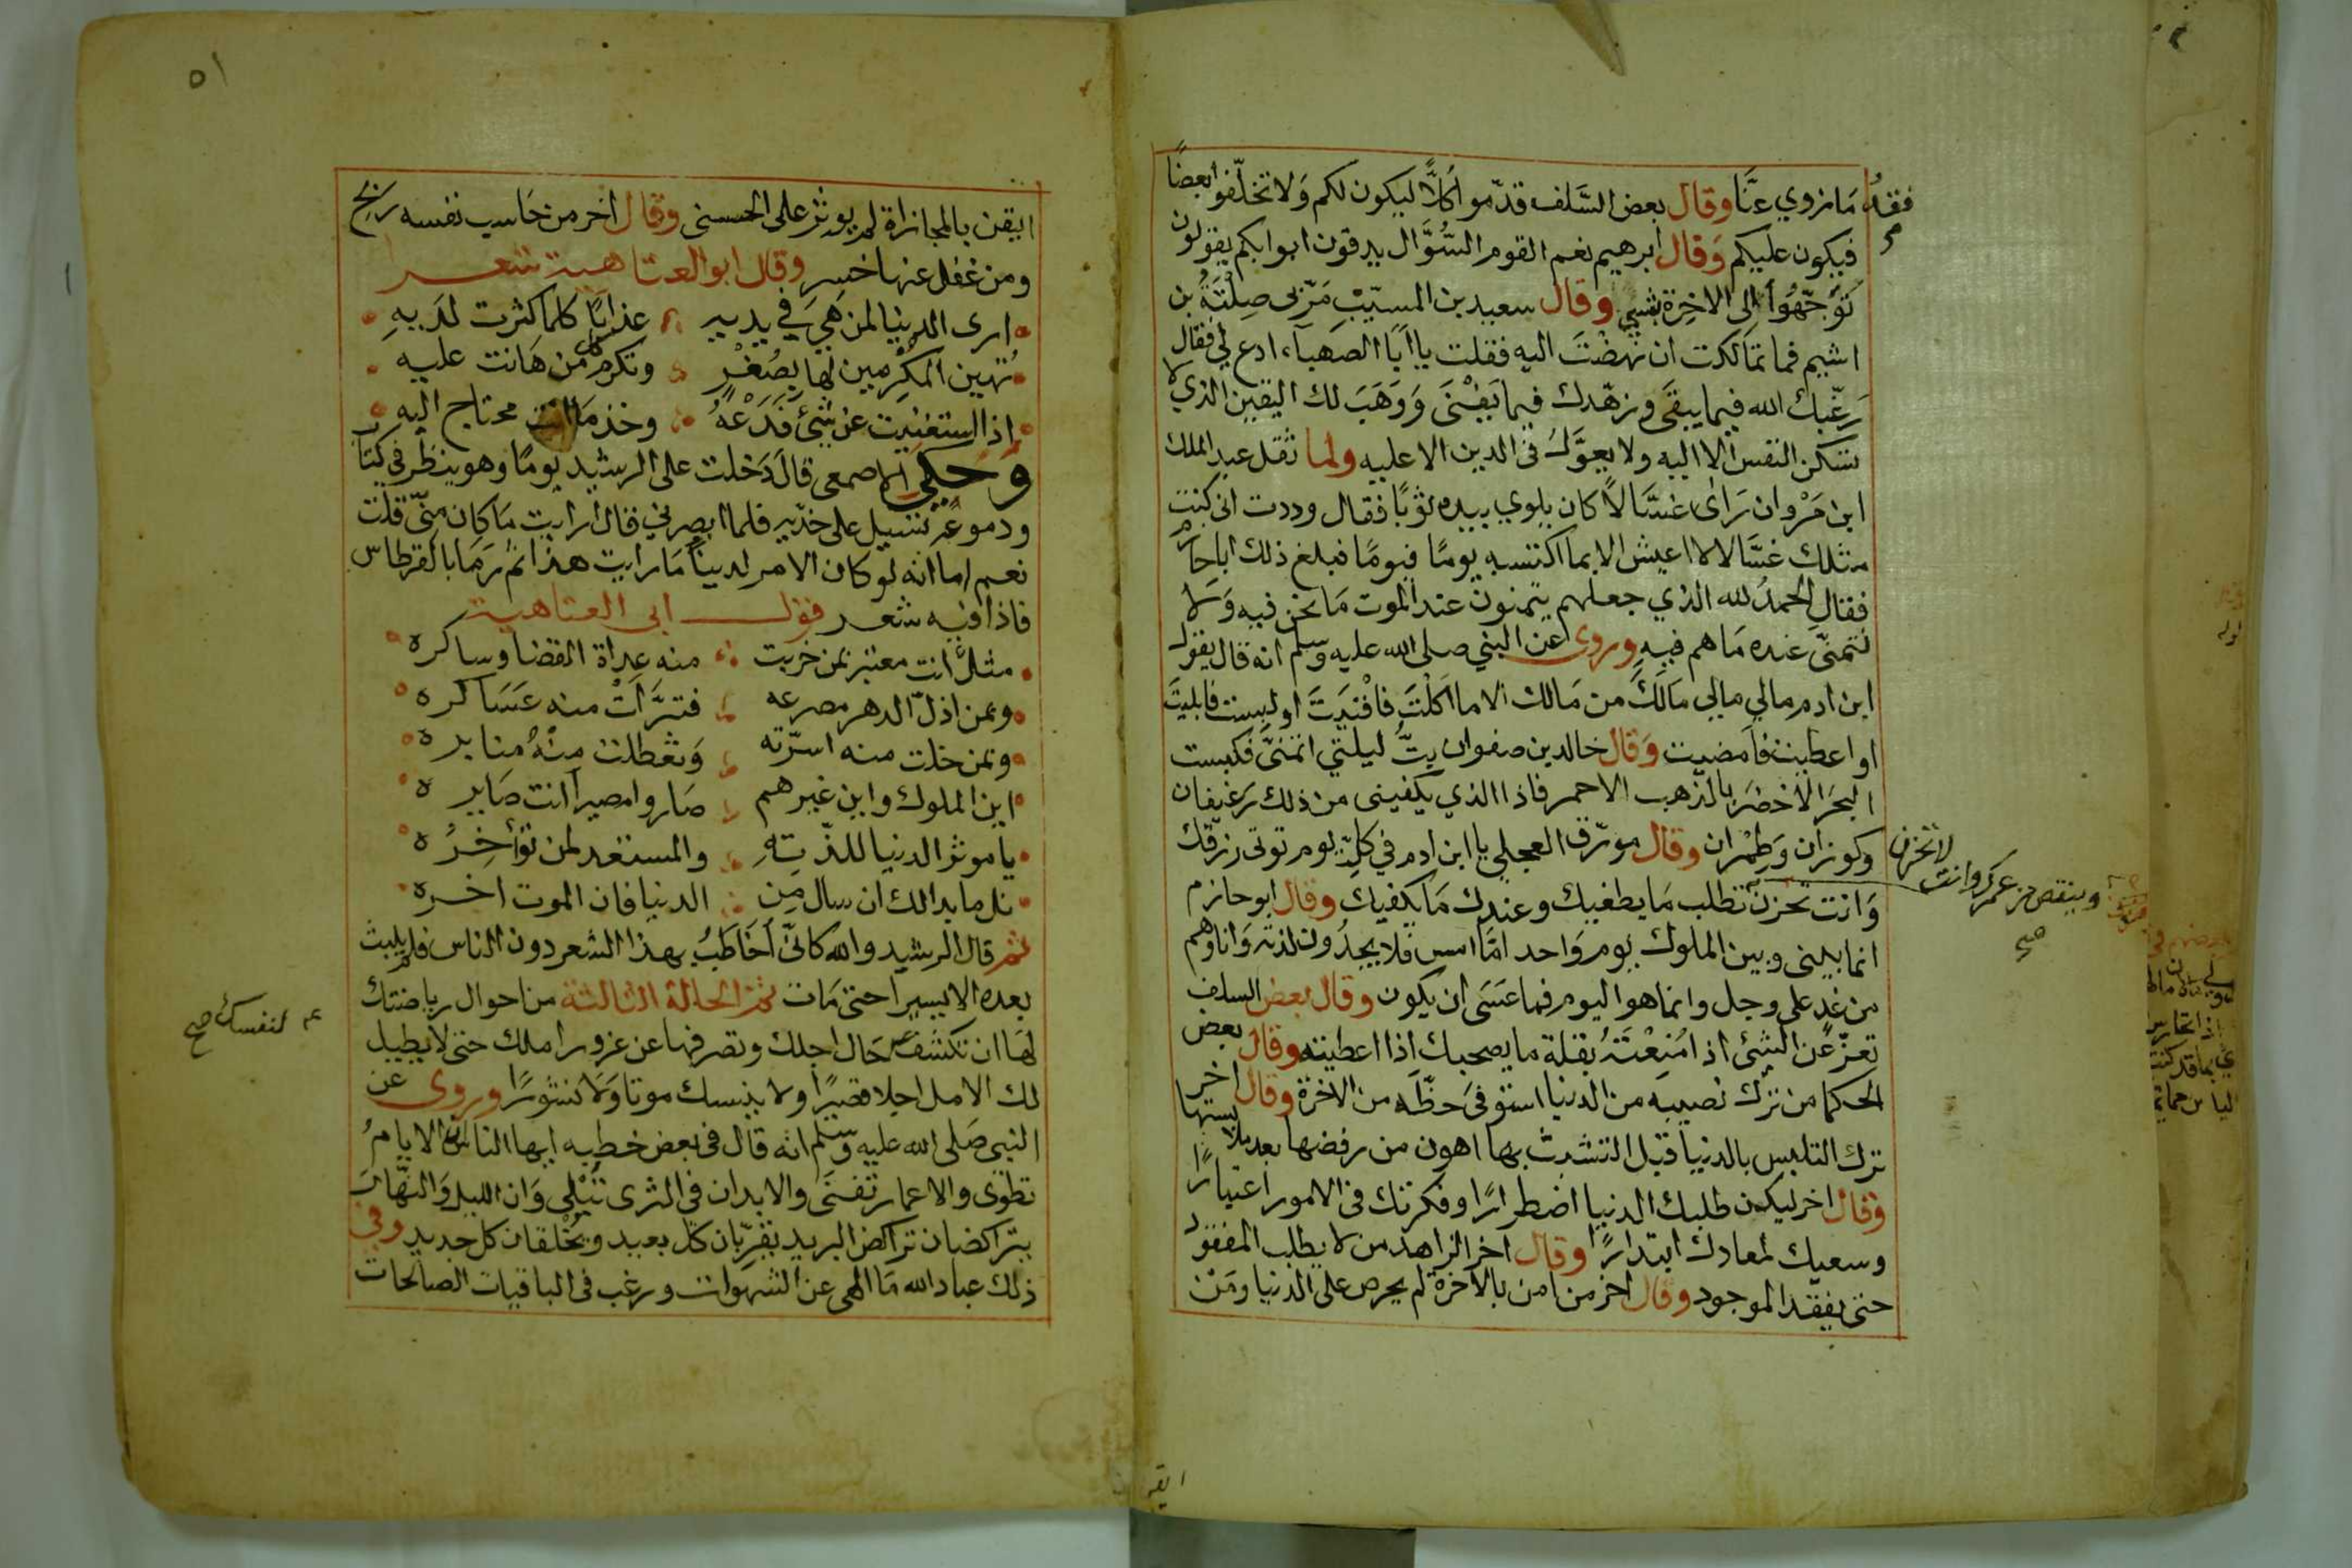 فقدُ مَا زوي عنَّا وقال بعض السَّلف قدّموا كلاًّ ليكون لكم وَلا تخلّفوا بعضًا
فيكون عليكم وَقال ابرهيم نعم القوم السُّوَّال يدقون ابوابكم يقولون
تَوَجّهُوا الى الاخِرة بشيٍ وقال سعيد بن المسيّب مَرّ بى صِلَتَهُ بن
اشيم فما تمَالكت ان نهضْتَ اليه فقلت يا اَبا الصهبآء ادع لي فقال
رَغّبك الله فيما يبقَى وزهّدك فيما يَفْنَى وَوَهَبَ لك اليقين الذي لا
تسكن النفس الا اليه ولا يعوَّلُ فى الدين الا عليه ولما ثقل عبد الملك
ابن مَرْوان رَاى غسَّالاً كان يلوي بيده ثوبًا فقال وددت انى كنت
مثلك غسَّالا لا اعيش الا بما اكتسبه يومًا فيومًا فبلغ ذلك اباحازم
فقال الحمدُ لله الذي جعلهم يتمنون عند الموت مَا نحن فيه وَلا
نتمنّى عنده مَا هم فيهِ وروى عن النبي صلى الله عليه وسلم انه قال يقول
ابن ادم مالي مالي مَالَكَ من مَالك الا ما اكَلْتَ فافْنَيَتَ او لبست فابليتَ
او اعطيت فامضيت وَقال خالد بن صفوان بِتُّ ليلتي اتمنّى فكبست
البحرَ الاخضَر بالذهب الاحمر فاذا الذي يكفينى من ذلك رَغيفان
وكوزان وَطِمْران وقال مورّق العجلي يا ابن ادم في كلّ يوم توتى رزقك
لا تحزن
وينقص من عمرك وانت
صح
وَانت تحزن تطلب مَا يطغيك وعندك مَا يكفيك وقال ابو حازم
انما بينى وبين الملوك يوم وَاحد امّا امس فلا يجدُون لذته وَانا وهم
من غدٍ على وجل وانما هو اليوم فما عسَى ان يكون وقال بعض السلف
تعزّ عن الشئ اذا مُنِعْتَهُ بقلة ما يصحبك اذا اعطيته وقال بعض
الحكما من ترك نصيبه من الدنيا استوفىَ حظّه من الاخرة وقال اخر
ترك التلبس بالدنيا قبل التشبث بها اهون من رفضها بعد ملابستها
وقال اخر ليكن طلبك الدنيا اضطرارًا وفكرتك فى الامور اعتبارًا
وسعيك لمعادك ابتدارًا وقال اخر الزاهد من لا يطلب المفقود
حتى يفقد الموجود وقال اخر من امن بالاخرة لم يحرص على الدنيا ومَنْ
ايقن
٥١
ايقن بالمجازاة لم يوثر على الحسنى وقال اخر من حَاسب نفسه ربح
ومن غفل عنها خسر وقال ابو العتاهية شعر
ارى الدنيا لمن هَيَ في يديه عذابًا كلما كثرت لدَيهِ
تُهين المكْرِمين لها بِصُغْرٍ وتكرم كل من هَانت عليه
اذا استغنيت عن شئ فَدَعْهُ وخذ مَا انت محتاج اليه
وَحكى الاصمعى قال دَخلت على الرشيد يومًا وهو ينظر في كتاب
ودموعُه تسيل على خدّيه فلما ابصرني قال ارايت مَا كان منّي قلت
نعم اما انه لو كان الامر لدينًا مَا رايت هذا ثم رَمَا بالقرطاس
فاذا فيه شعر قول ابى العتاهية
مثل انت معتبر بمن خربت منه غداة القضا وساكره
وبمن اذلّ الدهر مصرعه فتبرَّاَتْ منه عَسَاكره
وبمن خلت منه اسرّته وَتعطلت منْهُ منابره
اين الملوك واين غيرهم صَاروا مصيرا انت صَايره
يا موثر الدنيا للذّتهِ والمستعد لمن توأخِرُه
نل ما بدا لك ان سال مِن الدنيا فان الموت اخره
ثم قال الرشيد والله كانّى اُخَاطَبُ بهذا الشعر دون الناس فلم يلبث
بعده الا يسيرا حتى مَات ثم الحالة الثالثة من احوال رياضتك
لهَا ان تكشف حَال اجلك وتصرفها عن غرور املك حتى لا يطيل
لنفسك صح
لك الامل اجلا قصيرًا ولا ينسك موتا وَلا نشورًا وروى عن
النبى صَلى الله عليه وسلم انه قال فى بعض خطبه ايها الناس ان الايامُ
تطوَى والاعمار تفنَى والابدان فى الثرى تَبْلى وَان الليل وَالنهارَ
يتراكضان تراكض البريد يقرّبان كل بعيد ويُخْلقان كل جديد وفى
ذلك عباد الله مَا الهى عن الشهوات ورغب فى الباقيات الصالحات